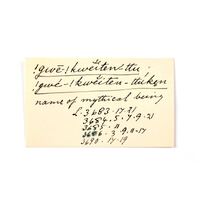 !gwē-/kwēiten-ttu.
!gwé-!kwēiten-ttúken
name of mythical being
L. 3683. 17. 21
3684. 5. 7. 9. 21
3685. 11
3686. 3. 9. 11. 17
3690. 17. 19